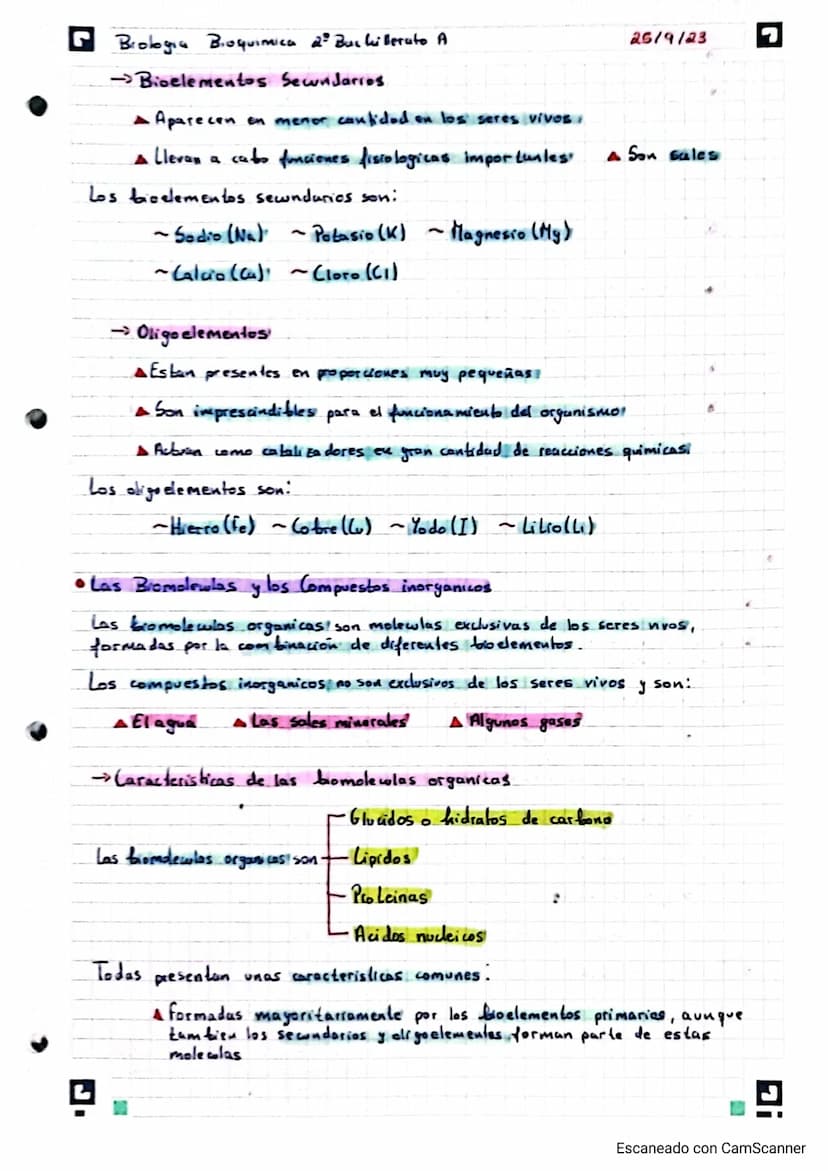 Biologia Bioquimica 2º Bachillerato A 25/9/23
→ Bioelementos Secundarios
▲ Aparecen en menor cantidad en los seres vivos.
▲ Llevan a cabo funciones fisiologicas importantes ▲ Son sales
Los bioelementos secundarios son:
~ Sodio (Na) ~ Potasio (K) ~ Magnesio (Mg)
~ Calcio (Ca) ~ Cloro (Cl)
→ Oligoelementos
▲ Estan presentes en proporciones muy pequeñas
▲ Son imprescindibles para el funcionamiento del organismo
▲ Actuan como catalizadores en gran cantidad de reacciones quimicas
Los oligoelementos son:
~ Hierro (Fe) ~ Cobre (Cu) ~ Yodo (I) ~ Litio (Li)
• Las Biomoleculas y los Compuestos inorganicos
Las biomoleculas organicas son moleculas exclusivas de los seres vivos,
formadas por la combinación de diferentes bioelementos.
Los compuestos inorganicos no son exclusivos de los seres vivos y son:
▲ El agua ▲ Las sales minerales ▲ Algunos gases
→ Caracteristicas de las biomoleculas organicas
Glucidos o hidratos de carbono
Las biomoleculas organicas son
Lipidos
Proteinas
Acidos nucleicos
Todas presentan unas caracteristicas comunes:
▲ Formadas mayoritariamente por los bioelementos primarios, aunque
tambien los secundarios y oligoelementos forman parte de estas
moleculas
Escaneado con CamScanner